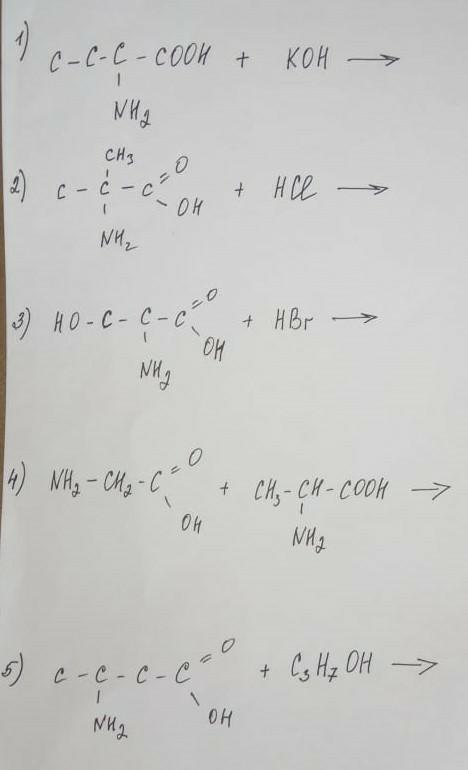 1) C - C - C - COOH + KOH →
NH2
CH3
2) C - C - C = O
- OH + HCl →
NH2
3) HO - C - C - C = O
OH + HBr →
NH2
4) NH2 - CH2 - C = O
OH + CH3 - CH - COOH →
NH2
5) C - C - C - C = O
OH + C3H7OH →
NH2